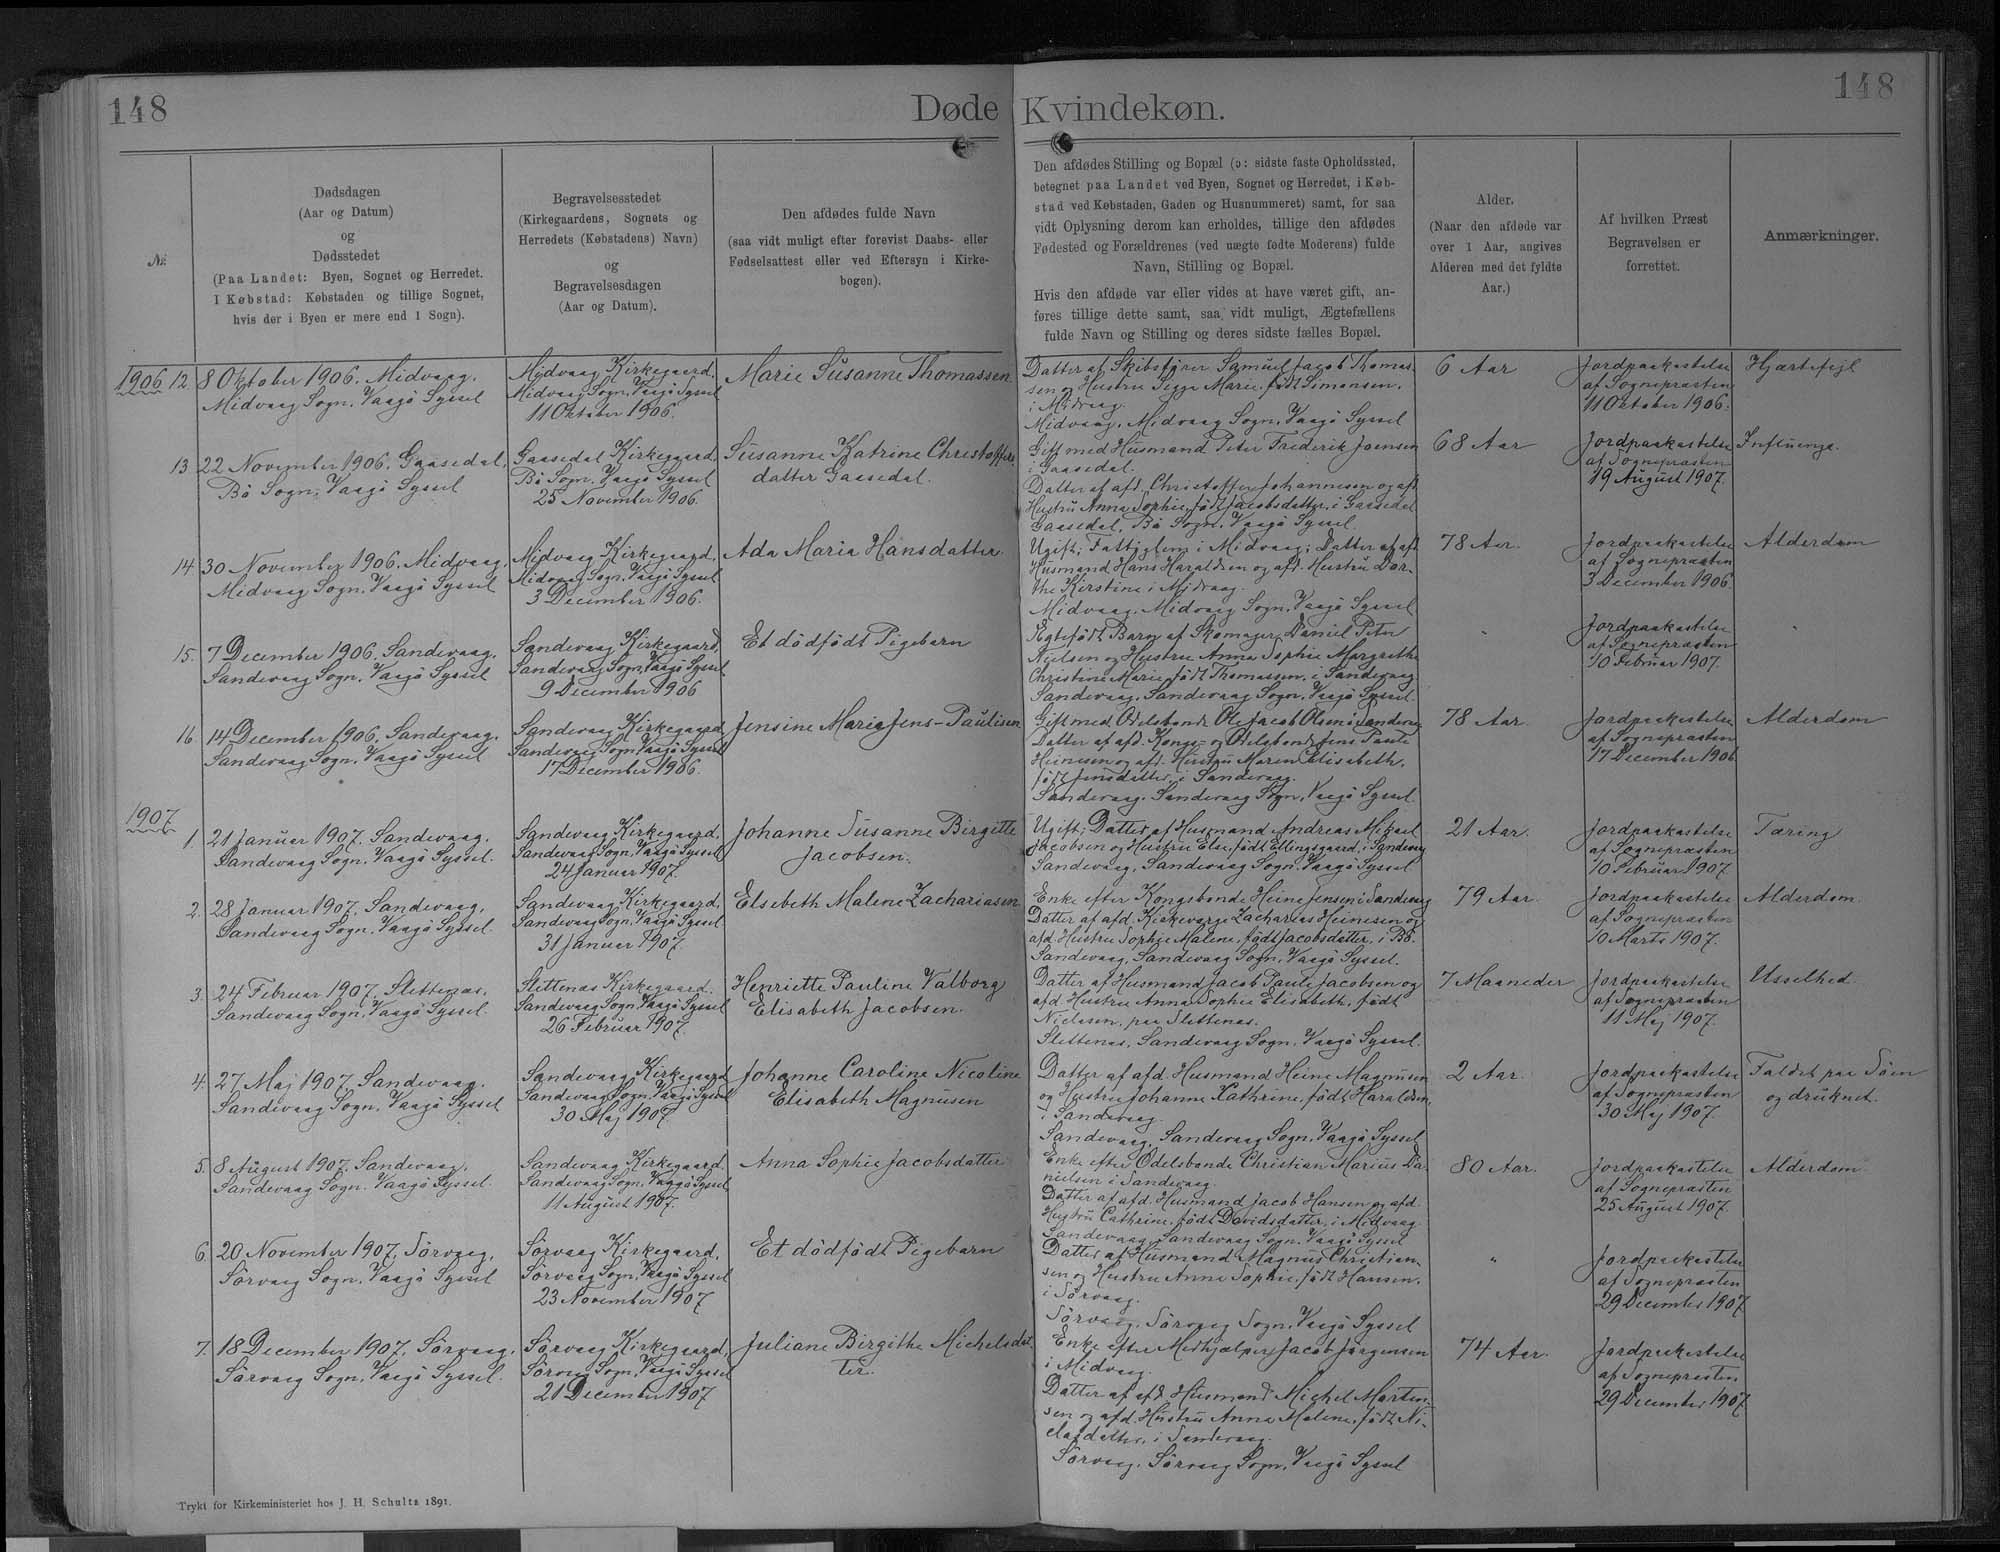 148
Døde Kvindekøn.
148
№
Dødsdagen
(Aar og Datum)
og
Dødsstedet
(Paa Landet: Byen, Sognet og Herredet.
I Købstad: Købstaden og tillige Sognet,
hvis der i Byen er mere end 1 Sogn).
Begravelsesstedet
(Kirkegaardens, Sognets og
Herredets (Købstadens) Navn)
og
Begravelsesdagen
(Aar og Datum).
Den afdødes fulde Navn
(saa vidt muligt efter forevist Daabs- eller
Fødselsattest eller ved Eftersyn i Kirke-
bogen).
Den afdødes Stilling og Bopæl (ɔ: sidste faste Opholdssted,
betegnet paa Landet ved Byen, Sognet og Herredet, i Køb-
stad ved Købstaden, Gaden og Husnummeret) samt, for saa
vidt Oplysning derom kan erholdes, tillige den afdødes
Fødested og Forældrenes (ved uægte fødte Moderens) fulde
Navn, Stilling og Bopæl.
Hvis den afdøde var eller vides at have været gift, an-
føres tillige dette samt, saa vidt muligt, Ægtefællens
fulde Navn og Stilling og deres sidste fælles Bopæl.
Alder.
(Naar den afdøde var
over 1 Aar, angives
Alderen med det fyldte
Aar.)
Af hvilken Præst
Begravelsen er
forrettet.
Anmærkninger.
1906
12.
8 Oktober 1906. Midvaag.
Midvaag Sogn, Vaagö Syssel
Midvaag Kirkegaard,
Midvaag Sogn, Vaagö Syssel
11 Oktober 1906.
Marie Susanne Thomassen
Datter af Skibsfører Samuel Jacob Thomas-
sen og Hustru Sigge Marie, født Simonsen,
i Midvaag.
Midvaag, Midvaag Sogn, Vaagö Syssel
6 Aar
Jordpaakastelse
af Sognepræsten
11 Oktober 1906.
Hjærtefejl
13
22 November 1906. Gaasedal,
Bö Sogn, Vaagö Syssel
Gaasedal Kirkegaard,
Bö Sogn, Vaagö Syssel
25 November 1906.
Susanne Katrine Christoffers-
datter Gaasedal.
Gift med Husmand Peter Frederik Joensen
i Gaasedal.
Datter af afd. Christoffer Johannesen og afd.
Hustru Anna Sophie, født Jacobsdatter, i Gaasedal
Gaasedal, Bö Sogn, Vaagö Syssel.
68 Aar
Jordpaakastelse
af Sognepræsten
19 August 1907.
Influenza.
14
30 November 1906. Midvaag,
Midvaag Sogn, Vaagö Syssel
Midvaag Kirkegaard,
Midvaag Sogn, Vaagö Syssel
3 December 1906.
Ada Maria Hansdatter
Ugift; Fattiglem i Midvaag; Datter af afd.
Husmand Hans Haraldsen og afd. Hustru Dor-
the Kirstine i Midvaag.
Midvaag, Midvaag Sogn, Vaagö Syssel
78 Aar.
Jordpaakastelse
af Sognepræsten
3 December 1906
Alderdom
15.
7 December 1906. Sandevaag,
Sandevaag Sogn, Vaagö Syssel
Sandevaag Kirkegaard,
Sandevaag Sogn, Vaagö Syssel
9 December 1906
Et dödfödt Pigebarn
Ægtefödt Barn af Skomager Daniel Peter
Nielsen og Hustru Anna Sophie Margrethe
Christine Marie, födt Thomassen, i Sandevaag
Sandevaag, Sandevaag Sogn, Vaagö Syssel.
"
Jordpaakastelse
af Sognepræsten
10 Februar 1907.
"
16
14 December 1906. Sandevaag,
Sandevaag Sogn, Vaagö Syssel
Sandevaag Kirkegaard,
Sandevaag Sogn, Vaagö Syssel
17 December 1906.
Jensine Maria Jens-Paulisen
Gift med Odelsbonde Ole Jacob Olsen i Sandevaag
Datter af afd. Kongs- og Odelsbonde Jens Pauli
Heinesen og afd. Hustru Maren Elisabeth,
født Jensdatter, i Sandevaag.
Sandevaag, Sandevaag Sogn, Vaagö Syssel.
78 Aar.
Jordpaakastelse
af Sognepræsten
17 December 1906
Alderdom
1907
1.
21 Januar 1907. Sandevaag,
Sandevaag Sogn, Vaagö Syssel.
Sandevaag Kirkegaard,
Sandevaag Sogn, Vaagö Syssel
24 Januar 1907.
Johanne Susanne Birgitte
Jacobsen.
Ugift; Datter af Husmand Andreas Mikael
Jacobsen og Hustru Else, født Ellingsgaard, i Sandevaag
Sandevaag, Sandevaag Sogn, Vaagö Syssel
21 Aar.
Jordpaakastelse
af Sognepræsten
10 Februar 1907.
Tæring
2.
28 Januar 1907. Sandevaag,
Sandevaag Sogn, Vaagö Syssel.
Sandevaag Kirkegaard,
Sandevaag Sogn, Vaagö Syssel
31 Januar 1907.
Elsebeth Malene Zachariasen
Enke efter Kongsbonde Heine Jensen i Sandevaag
Datter af afd. Kirkeværge Zacharias Heinesen og
afd. Hustru Sophie Malene, født Jacobsdatter, i Bö.
Sandevaag, Sandevaag Sogn, Vaagö Syssel.
79 Aar.
Jordpaakastelse
af Sognepræsten
10 Marts 1907.
Alderdom.
3.
24 Februar 1907. Slettenæs,
Sandevaag Sogn, Vaagö Syssel.
Slettenæs Kirkegaard.
Sandevaag Sogn, Vaagö Syssel
26 Februar 1907.
Henriette Pauline Valborg
Elisabeth Jacobsen.
Datter af Husmand Jacob Pauli Jacobsen og
afd. Hustru Anna Sophie Elisabeth, født
Nielsen, paa Slettenæs.
Slettenæs, Sandevaag Sogn, Vaagö Syssel.
7 Maaneder
Jordpaakastelse
af Sognepræsten
11 Maj 1907.
Usselhed.
4.
27 Maj 1907. Sandevaag,
Sandevaag Sogn, Vaagö Syssel
Sandevaag Kirkegaard
Sandevaag Sogn, Vaagö Syssel
30 Maj 1907.
Johanne Caroline Nicoline
Elisabeth Magnusen
Datter af afd. Husmand Heine Magnusen
og Hustru Johanne Kathrine, født Haraldsen,
i Sandevaag.
Sandevaag, Sandevaag Sogn, Vaagö Syssel
2 Aar.
Jordpaakastelse
af Sognepræsten
30 Maj 1907.
Faldet paa Söen
og druknet.
5.
8 August 1907. Sandevaag,
Sandevaag Sogn, Vaagö Syssel.
Sandevaag Kirkegaard,
Sandevaag Sogn, Vaagö Syssel
11 August 1907.
Anna Sophie Jacobsdatter
Enke efter Odelsbonde Christian Marius Da-
nielsen i Sandevaag.
Datter af afd. Husmand Jacob Hansen og afd.
Hustru Cathrine, født Davidsdatter, i Midvaag.
Sandevaag, Sandevaag Sogn, Vaagö Syssel
80 Aar.
Jordpaakastelse
af Sognepræsten
25 August 1907.
Alderdom
6.
20 November 1907. Sörvaag,
Sörvaag Sogn, Vaagö Syssel
Sörvaag Kirkegaard,
Sörvaag Sogn, Vaagö Syssel
23 November 1907
Et dödfödt Pigebarn
Datter af Husmand Magnus Christian-
sen og Hustru Anna Sophie, født Hansen,
i Sörvaag.
Sörvaag, Sörvaag Sogn, Vaagö Syssel
"
Jordpaakastelse
af Sognepræsten
29 December 1907
7.
18 December 1907. Sörvaag,
Sörvaag Sogn, Vaagö Syssel.
Sörvaag Kirkegaard,
Sörvaag Sogn, Vaagö Syssel
21 December 1907
Juliane Birgithe Michelsdat-
ter.
Enke efter Medhjælper Jacob Jörgensen
i Midvaag.
Datter af afd. Husmand Michel Marten-
sen og afd. Hustru Anna Malene, født Ni-
clasdatter, i Sandevaag.
Sörvaag, Sörvaag Sogn, Vaagö Syssel
74 Aar.
Jordpaakastelse
af Sognepræsten
29 December 1907
Trykt for Kirkeministeriet hos J. H. Schultz 1891.